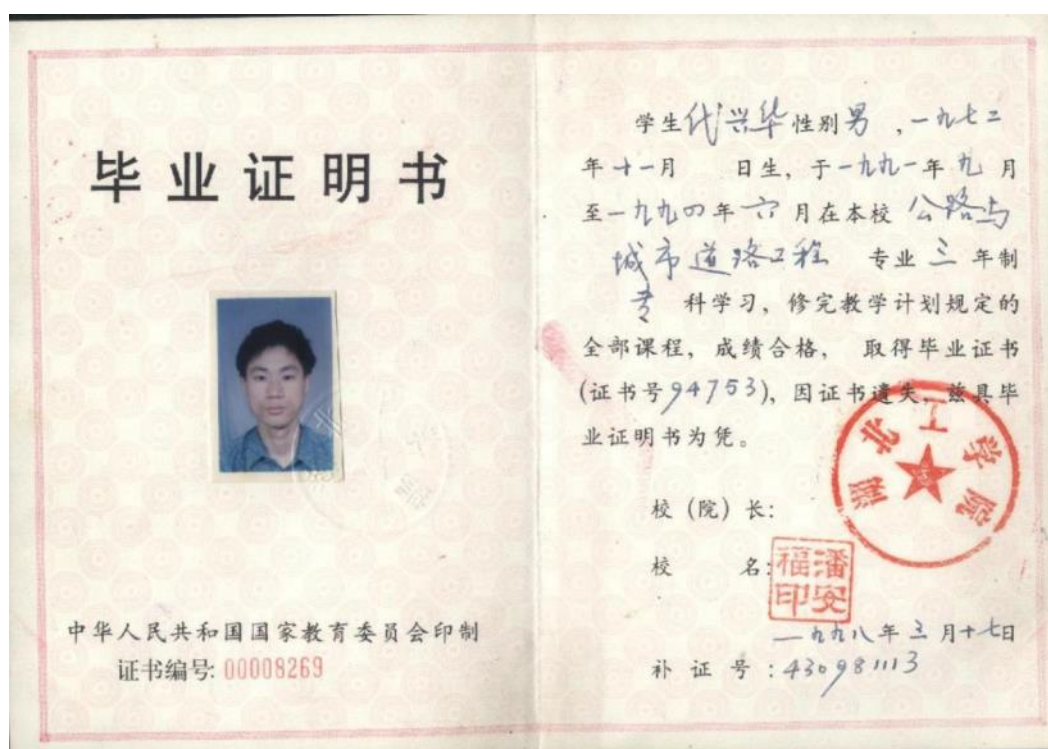 毕业证明书
中华人民共和国国家教育委员会印制
证书编号: 00008269
学生代兴华性别男,一九七二
年十一月 日生,于一九九一年九月
至一九九四年六月在本校公路与
城市道路工程 专业三年制
专 科学习,修完教学计划规定的
全部课程,成绩合格, 取得毕业证书
(证书号94753),因证书遗失,兹具毕
业证明书为凭。
湖北工学院
校(院)长:
校 名:
潘安福印
一九九八年三月十七日
补证号:430981113